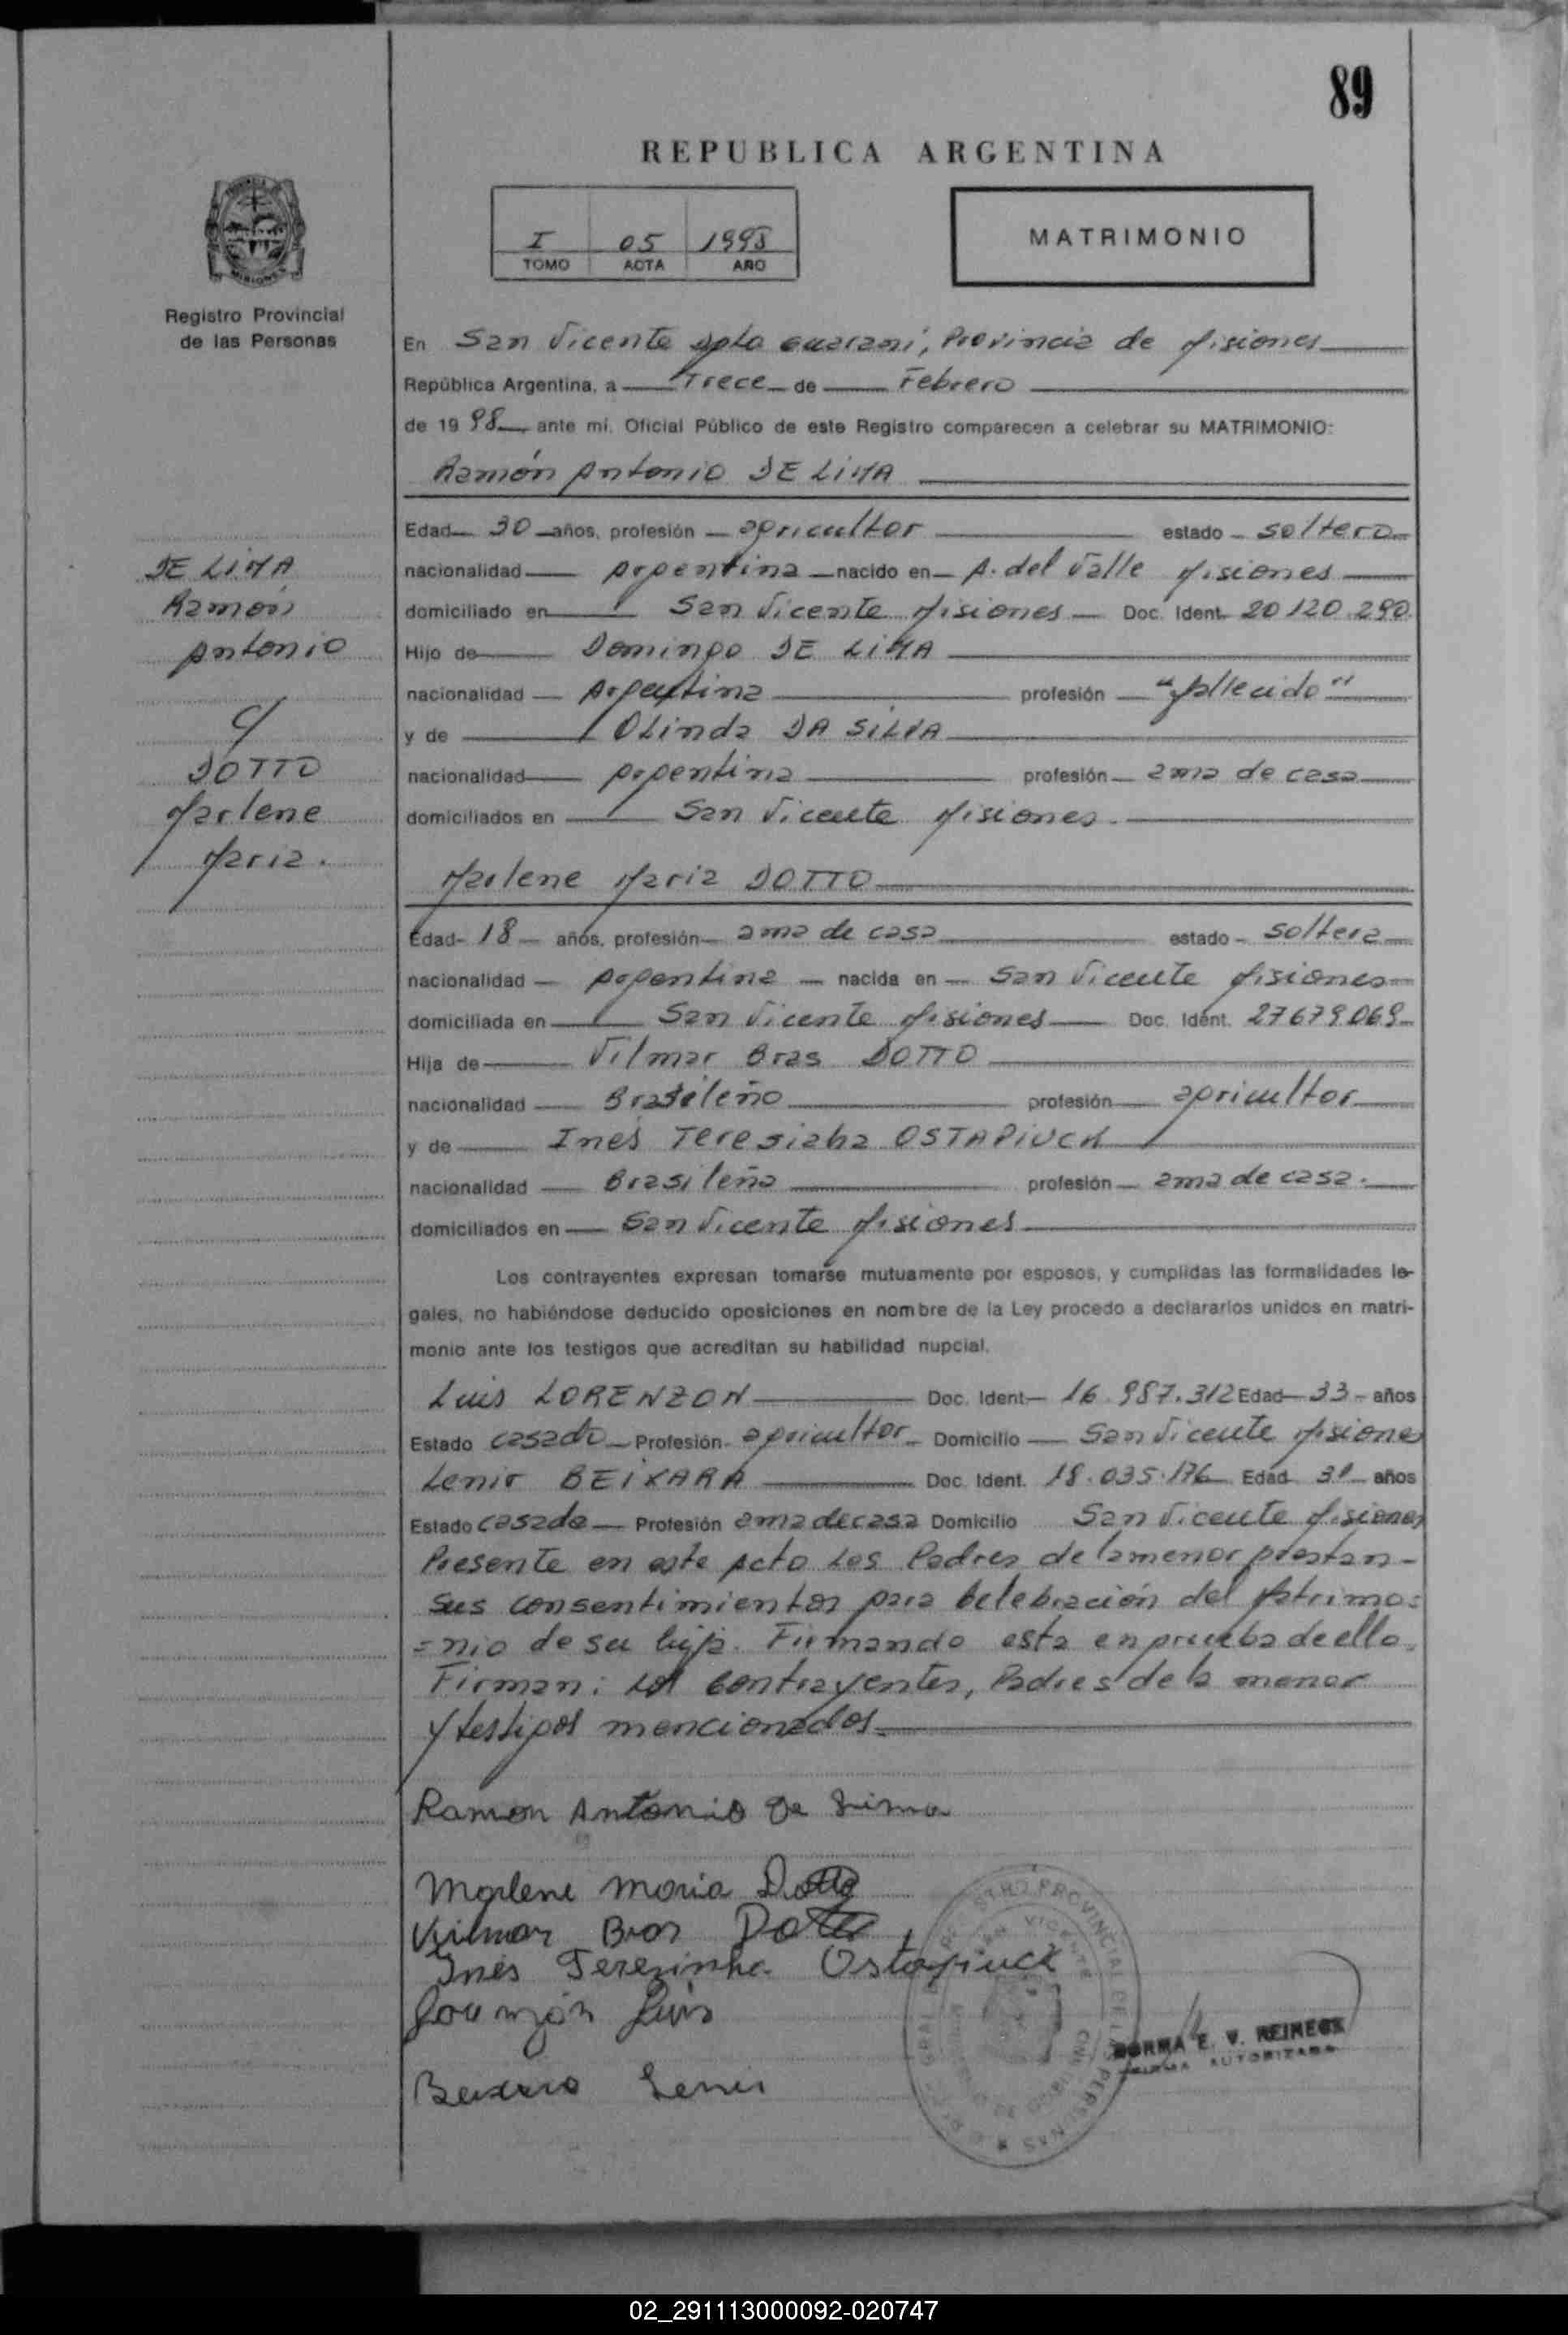 89
REPUBLICA ARGENTINA
I 05 1998
TOMO ACTA AÑO
MATRIMONIO
Registro Provincial
de las Personas
En San Vicente Dpto Guaraní, Provincia de Misiones
República Argentina, a Trece de Febrero
de 19 98 ante mí, Oficial Público de este Registro comparecen a celebrar su MATRIMONIO:
Ramón Antonio DE LIMA
Edad 30 años, profesión agricultor estado soltero
nacionalidad Argentina nacido en A. del Valle Misiones
domiciliado en San Vicente Misiones Doc. Ident. 20 120.290
Hijo de Domingo DE LIMA
nacionalidad Argentina profesión "fallecido"
y de OLinda DA SILVA
nacionalidad Argentina profesión ama de casa
domiciliados en San Vicente Misiones.
DE LIMA
Ramón
Antonio
c/
DOTTO
Marlene
Maria.
Marlene Maria DOTTO
Edad 18 años, profesión ama de casa estado soltera
nacionalidad Argentina nacida en San Vicente Misiones
domiciliada en San Vicente Misiones Doc. Ident. 27679069
Hija de Vilmar Bras DOTTO
nacionalidad Brasileño profesión agricultor
y de Inés Teresinha OSTAPIUCK
nacionalidad Brasileña profesión ama de casa.
domiciliados en San Vicente Misiones
Los contrayentes expresan tomarse mutuamente por esposos, y cumplidas las formalidades le-
gales, no habiéndose deducido oposiciones en nombre de la Ley procedo a declararlos unidos en matri-
monio ante los testigos que acreditan su habilidad nupcial.
Luis LORENZON Doc. Ident 16.987.312 Edad 33 años
Estado casado Profesión agricultor Domicilio San Vicente Misiones
Lenir BEIXARA Doc. Ident. 18.035.176 Edad 31 años
Estado casada Profesión ama de casa Domicilio San Vicente Misiones
Presente en este Acto Los Padres de la menor prestan-
sus consentimientos para Celebración del Matrimo=
=nio de su hija. Firmando esta en prueba de ello.
Firman: Los Contrayentes, Padres de la menor
y testigos mencionados.
Ramon Antonio De Lima
Marlene Maria Dotto
Vilmar Bras Dotto
Inés Terezinha Ostapiuck
Lorenzón Luis
Lenir
NORMA E. V. REINECK
FIRMA AUTORIZADA
02_291113000092-020747